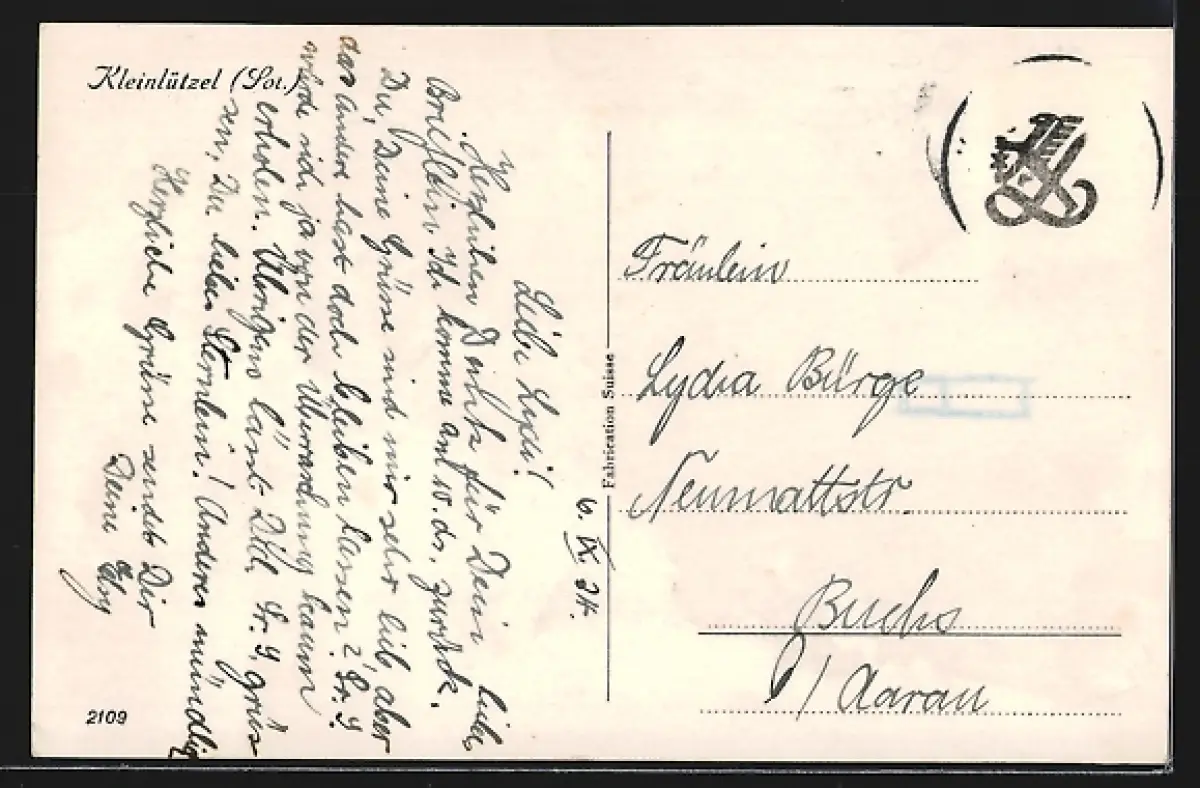 Kleinlützel (Sol.)
6. IX. 34.
Liebe Lydi!
Herzlichen Dank für Dein liebes
Brieflein. Ich komme am 10. ds. zurück.
Du, Deine Grüsse sind mir sehr lieb, aber
das andere hast doch bleiben lassen? Fr. G
würde sich ja von der Überraschung kaum
erholen. Übrigens lässt Dich Fr. G. grüs
sen, Du liebes Sternlein! Anderes mündlich
Herzliche Grüsse sendet Dir
Deine
2109
Fabrication Suisse
Fräulein
Lydia Bürge
Neumattstr.
Buchs
b/ Aarau